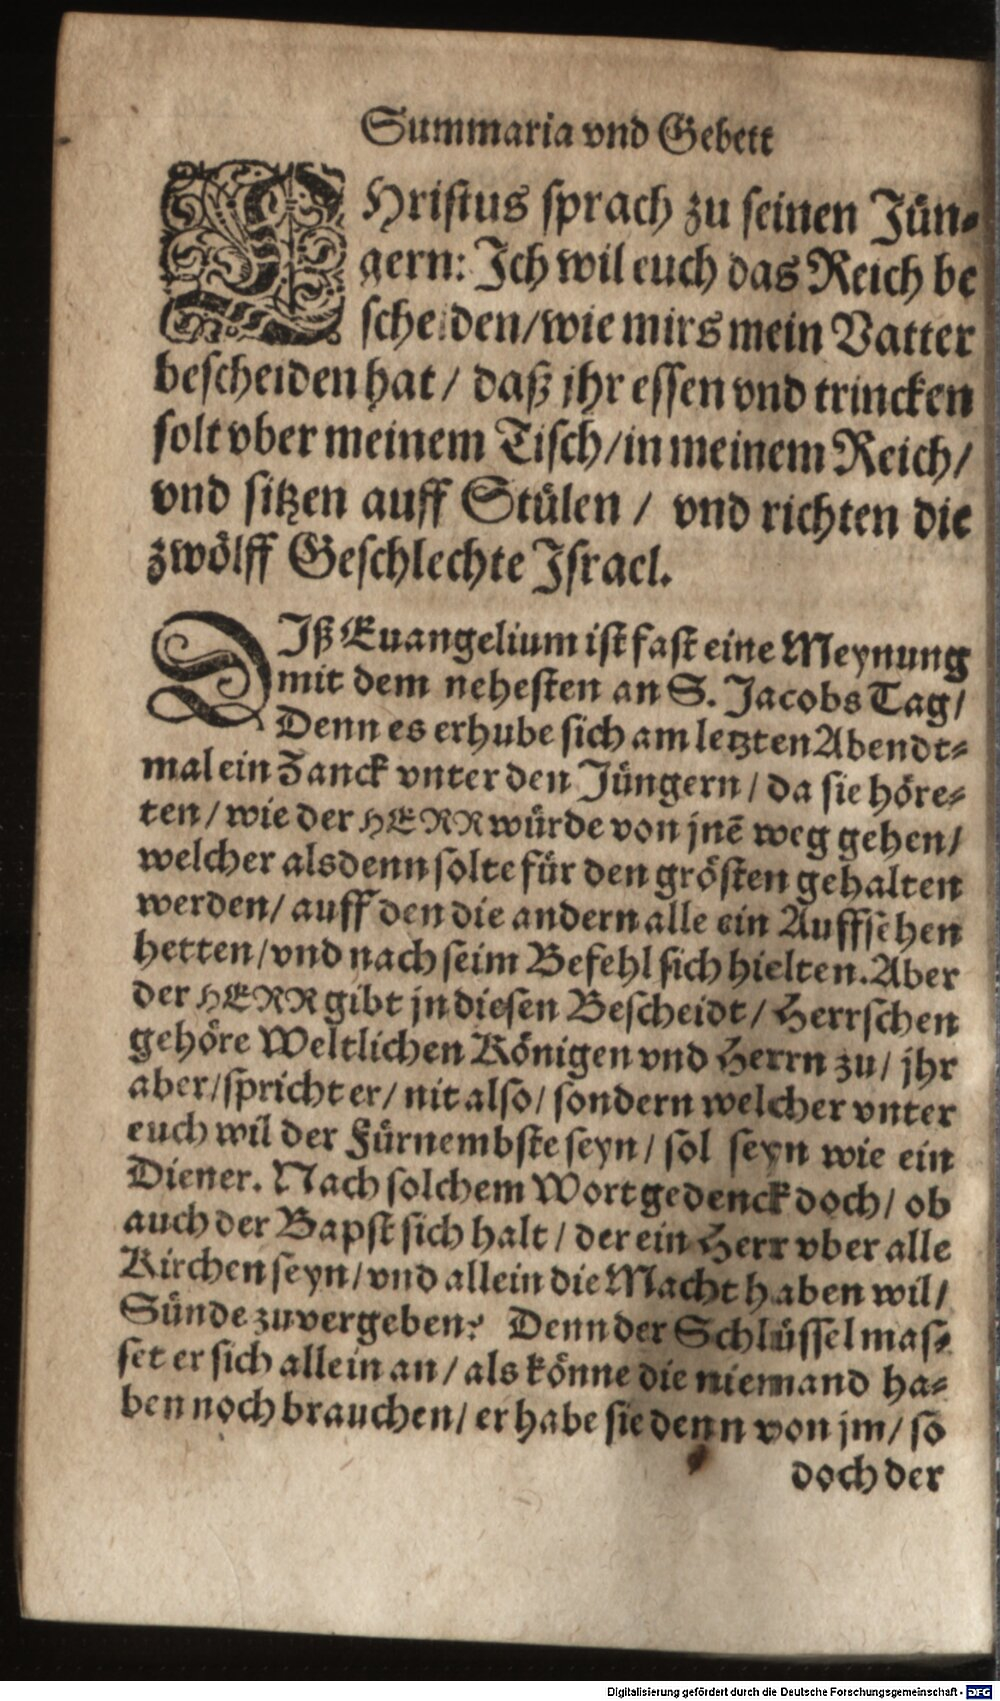 Summaria vnd Gebett
CHriſtus ſprach zu ſeinen Jün-
gern: Ich wil euch das Reich be
ſcheiden/wie mirs mein Vatter
beſcheiden hat / daß jhr eſſen vnd trincken
ſolt vber meinem Tiſch/in meinem Reich/
vnd ſitzen auff Stülen / vnd richten die
zwölff Geſchlechte Iſrael.
DIß Euangelium iſt faſt eine Meynung
mit dem neheſten an S. Jacobs Tag/
Denn es erhube ſich am letzten Abendt-
mal ein Zanck vnter den Jüngern / da ſie höre-
ten / wie der HERR würde von jnē weg gehen/
welcher alsdenn ſolte für den gröſten gehalten
werden/ auff den die andern alle ein Auffſehen
hetten/vnd nach ſeim Befehl ſich hielten. Aber
der HERR gibt jn dieſen Beſcheidt/ Herrſchen
gehöre Weltlichen Königen vnd Herrn zu/ jhr
aber/ſpricht er/ nit alſo/ ſondern welcher vnter
euch wil der Fürnembſte ſeyn/ ſol ſeyn wie ein
Diener. Nach ſolchem Wort gedenck doch/ ob
auch der Bapſt ſich halt / der ein Herr vber alle
Kirchen ſeyn/vnd allein die Macht haben wil/
Sünde zuvergeben? Denn der Schlüſſel maſ-
ſet er ſich allein an / als könne die niemand ha-
ben noch brauchen/ er habe ſie denn von jm/ ſo
doch der
Digitalisierung gefördert durch die Deutsche Forschungsgemeinschaft - DFG